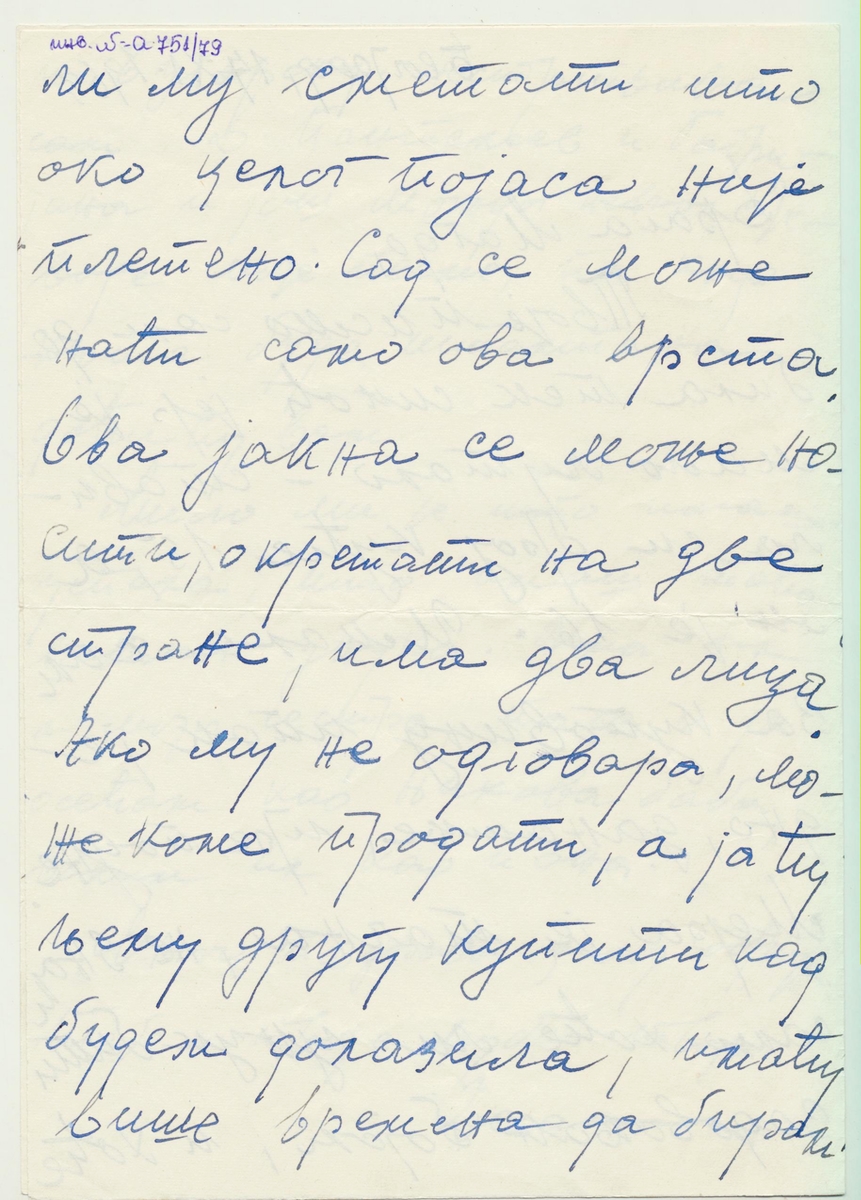 инв. № -а-751/79
ли му сметати што
око целог појаса није
плетено. Сад се може
наћи само ова врста.
Ова јакна се може но-
сити, окретати на две
стране, има два лица.
Ако му не одговара, мо-
же коме продати, а ја ћу
њему другу купити кад
будем долазила, имаћу
више времена да бирам.